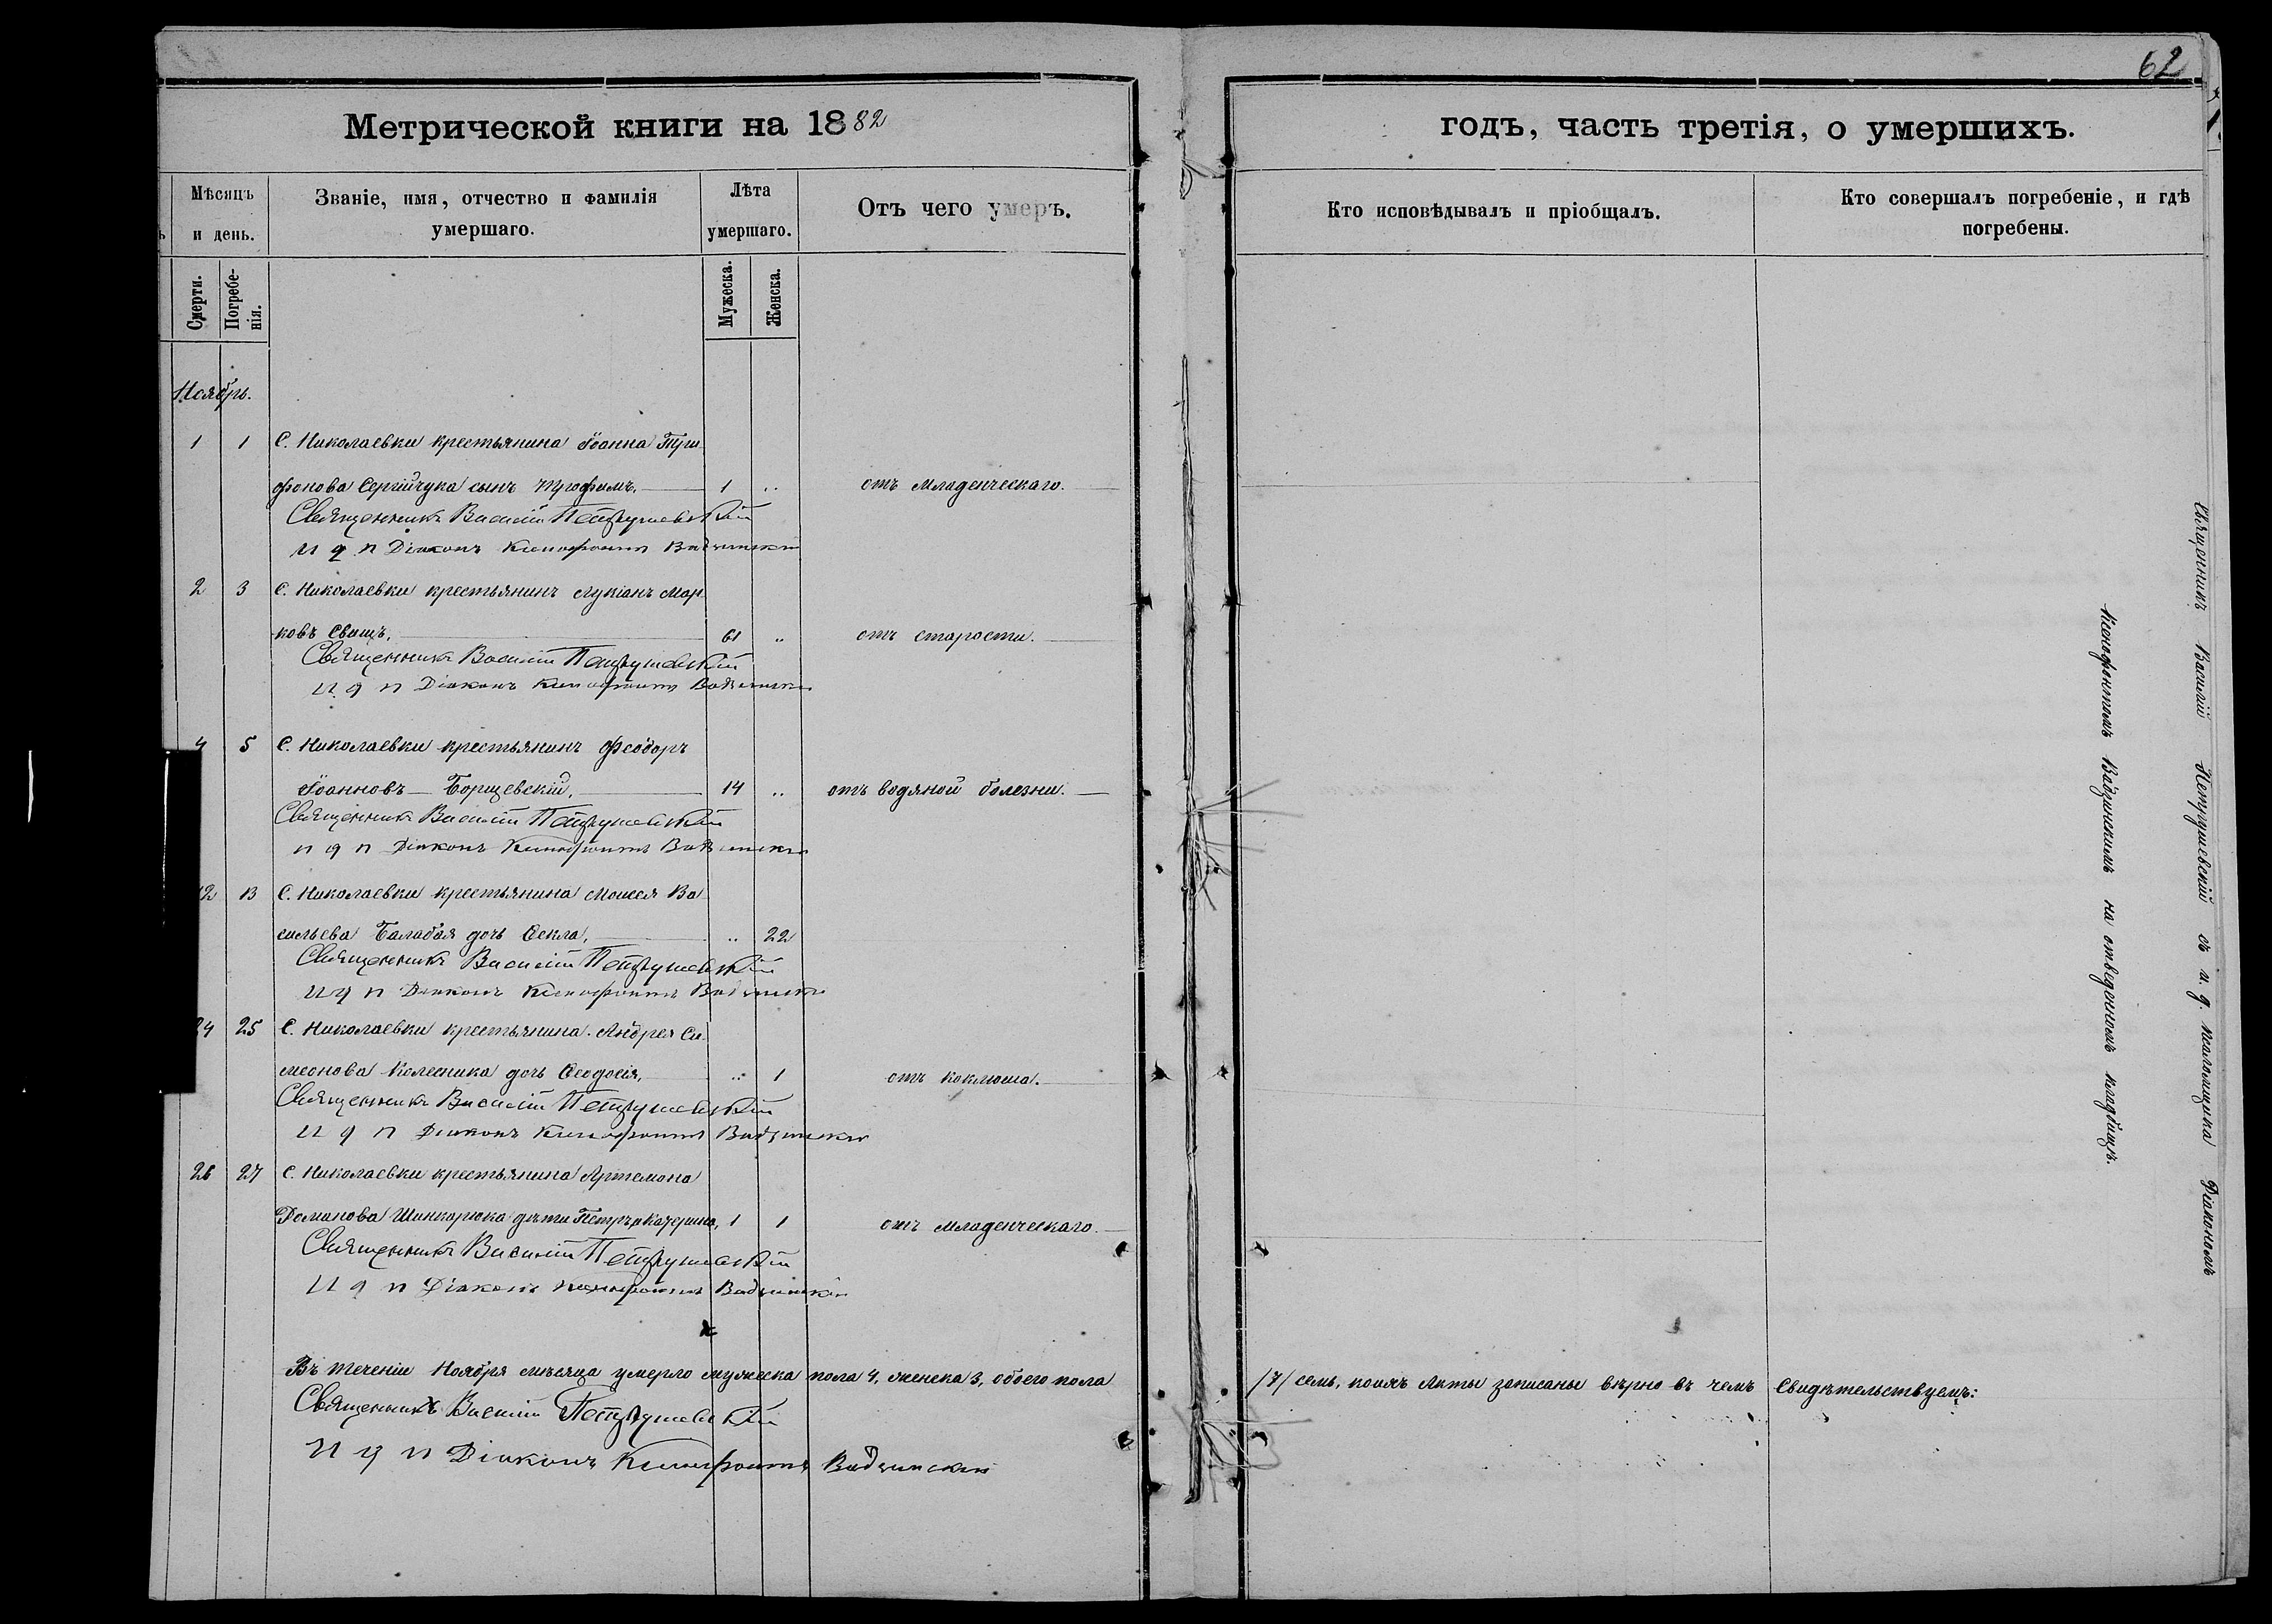 62
Метрической книги на 1882
годъ, часть третія, о умершихъ.
Мѣсяцъ и день.
Званіе, имя, отчество и фамилія умершаго.
Лѣта умершаго.
Отъ чего умеръ.
Кто исповѣдывалъ и пріобщалъ.
Кто совершалъ погребеніе, и гдѣ погребены.
Смерти.
Погребе-
нія.
Мужеска.
Женска.
Ноябрь.
1 1 С. Николаевки крестьянина Іоанна Три-
фонова Сергійчука сынъ Трофимъ. 1 .. отъ младенческаго.
Священникъ Василій Петрушевскій
И д п Діаконъ Ксенофонтъ Вадзинскій
2 3 С. Николаевки крестьянинъ Лукіанъ Мар-
ковъ Свищъ. 61 .. отъ старости.
Священникъ Василій Петрушевскій
И д п Діаконъ Ксенофонтъ Вадзинскій
4 5 С. Николаевки крестьянинъ Феодоръ
Іоанновъ Борщевскій. 14 .. отъ водяной болезни.
Священникъ Василій Петрушевскій
И д п Діаконъ Ксенофонтъ Вадзинскій
12 13 С. Николаевки крестьянина Моисея Ва-
сильева Балабая дочь Ѳекла, .. 22
Священникъ Василій Петрушевскій
И д п Діаконъ Ксенофонтъ Вадзинскій
24 25 С. Николаевки крестьянина Андрея Си-
меонова Колесника дочь Ѳеодосія, .. 1 отъ коклюша.
Священникъ Василій Петрушевскій
И д п Діаконъ Ксенофонтъ Вадзинскій
26 27 С. Николаевки крестьянина Артемона
Романова Шинкарюка дѣти Петръ и Катерина, 1 1 отъ младенческаго.
Священникъ Василій Петрушевскій
И д п Діаконъ Ксенофонтъ Вадзинскій
Въ теченіи Ноября мѣсяца умерло мужеска пола 4, женска 3, обоего пола /7/ семь, коихъ Акты записаны вѣрно въ чемъ свидѣтельствуемъ:
Священникъ Василій Петрушевскій
И д п Діаконъ Ксенофонтъ Вадзинскій
Священникъ Василій Петрушевскій съ и. д. псаломщика Діакономъ
Ксенофонтомъ Вадзинскимъ на отведенномъ кладбищѣ.